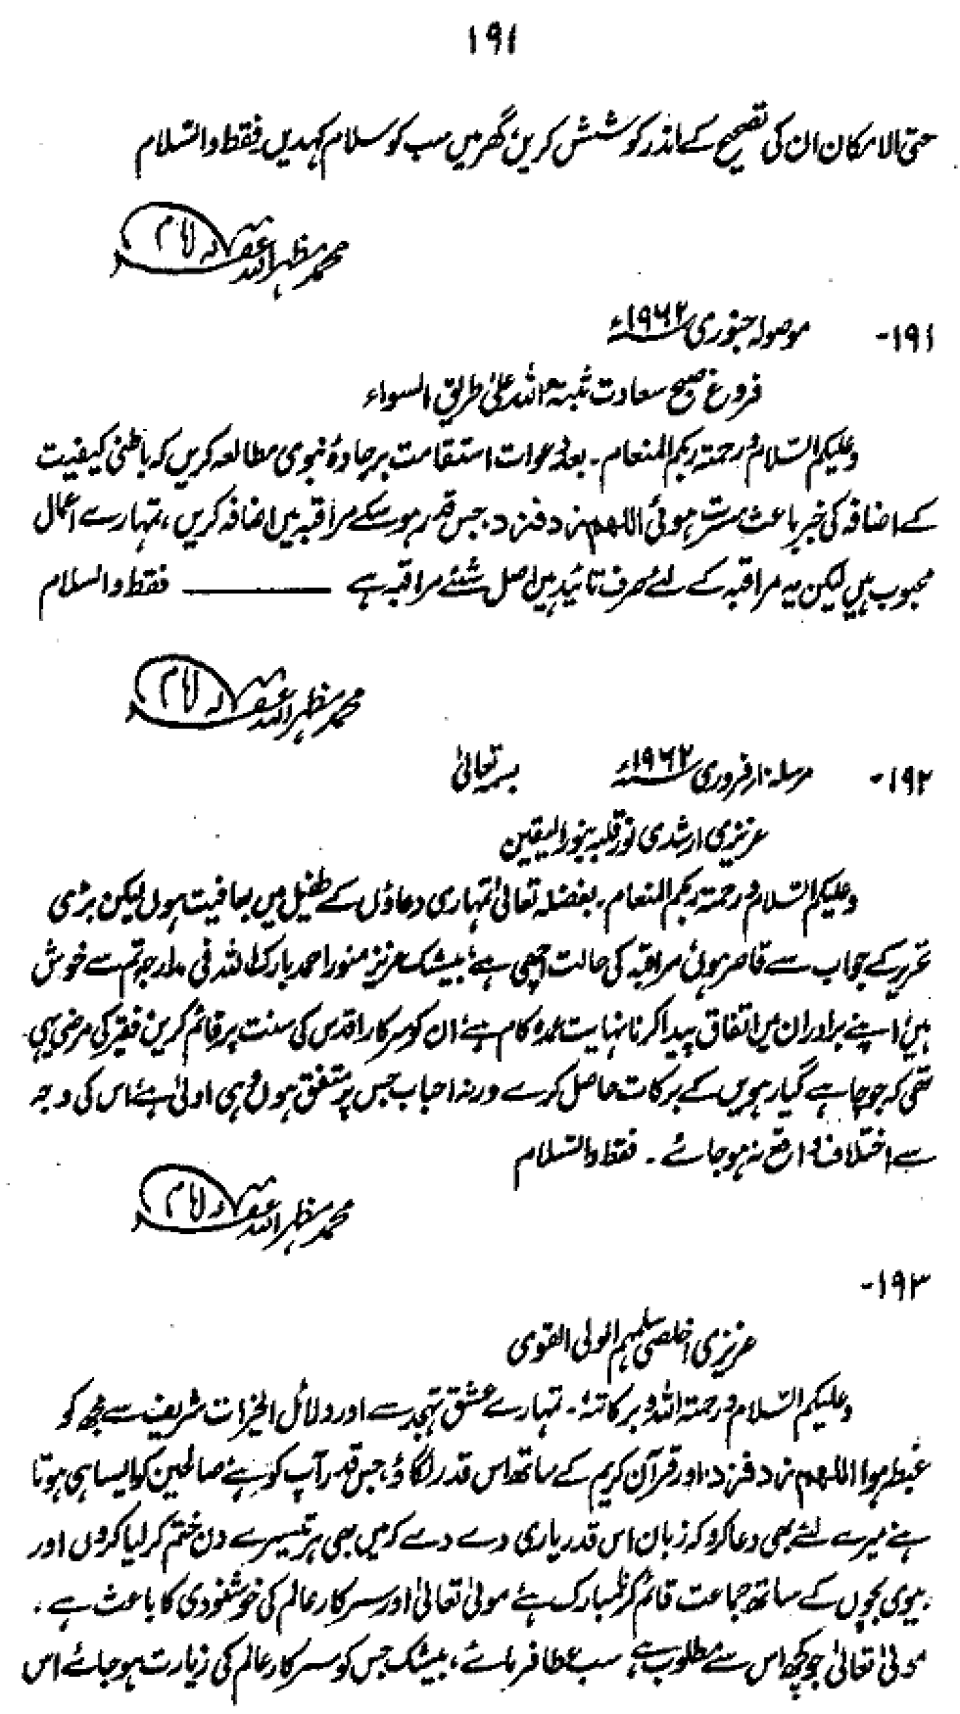 ۱۹۱
حتی الامکان ان کی تصحیح کے اندر کوشش کریں گھر میں سب کو سلام کہدیں فقط والسّلام
محمد مظہر اللہ غفرلہ امام
۱۹۱- موصولہ جنوری ۱۹۶۲ء
فروغ صبح سعادت ثبتہ اللہ علیٰ طریق السواء
وعلیکم السّلام و رحمۃ ربکم المنعام۔ بعد دعوات استقامت بر جادۂ نبوی مطالعہ کریں کہ باطنی کیفیت
کے اضافہ کی خبر باعث مسرت ہوئی اللھم زد فزد، جس قدر ہو سکے مراقبہ میں اضافہ کریں، تمہارے اعمال
محبوب ہیں لیکن یہ مراقبہ کے لئے صرف تائید ہیں اصل شئے مراقبہ ہے ——— فقط والسلام
محمد مظہر اللہ غفرلہ امام
۱۹۲- مرسلہ ۱۰ر فروری ۱۹۶۲ء بسمہ تعالیٰ
عزیزی ارشدی نور قلبہ بنور الیقین
وعلیکم السّلام و رحمۃ ربکم المنعام۔ بفضلہ تعالیٰ تمہاری دعاؤں کے طفیل میں بعافیت ہوں لیکن بڑی
تحریر کے جواب سے قاصر ہوئی مراقبہ کی حالت اچھی ہے، بیشک عزیز منور احمد بارک اللہ فی مدارجہ تم سے خوش
ہیں، اپنے برادران میں اتفاق پیدا کرنا نہایت عمدہ کام ہے، ان کو سرکار اقدس کی سنت پر قائم کریں فقیر کی مرضی یہی
تھی کہ جو چاہے گیارہویں کے برکات حاصل کرے ورنہ احباب جس پر متفق ہوں وہی اولیٰ ہے، اس کی وجہ
سے اختلاف واقع نہ ہو جائے۔ فقط والسّلام
محمد مظہر اللہ غفرلہ امام
۱۹۳-
عزیزی اخلصی سلمہم الولی القوی
وعلیکم السّلام و رحمۃ اللہ و برکاتہٗ۔ تمہارے عشق تہجد سے اور دلائل الخیرات شریف سے مجھ کو
غبطہ ہوا اللھم زد فزد، اور قرآن کریم کے ساتھ اس قدر لگاؤ، جس قدر آپ کو ہے صالحین کو ایسا ہی ہوتا
ہے میرے لئے بھی دعا کرو کہ زبان اس قدر یاری دے دے کہ میں بھی ہر تیسرے دن ختم کر لیا کروں اور
بیوی بچوں کے ساتھ جماعت قائم کرنا مبارک ہے، مولیٰ تعالیٰ اور سرکار عالم کی خوشنودی کا باعث ہے۔
مولیٰ تعالیٰ جو کچھ اس سے مطلوب ہے سب عطا فرمائے، بیشک جس کو سرکار عالم کی زیارت ہو جائے اس